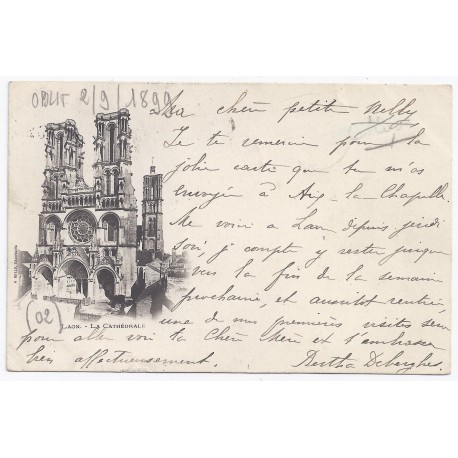 OBLIT 2/9/1899
Ma chère petite Nelly
Je te remercie pour la
jolie carte que tu m'as
envoyée à Aix-la-Chapelle.
Me voici à Laon depuis jeudi
soir, j compte y rester jusque
vers la fin de la semaine
prochaine, et aussitôt rentrée,
une de mes premières visites sera
pour aller voir ta chère mère et t'embrasser
bien affectueusement. Bertha Deberghes
LAON. - LA CATHÉDRALE
(02)